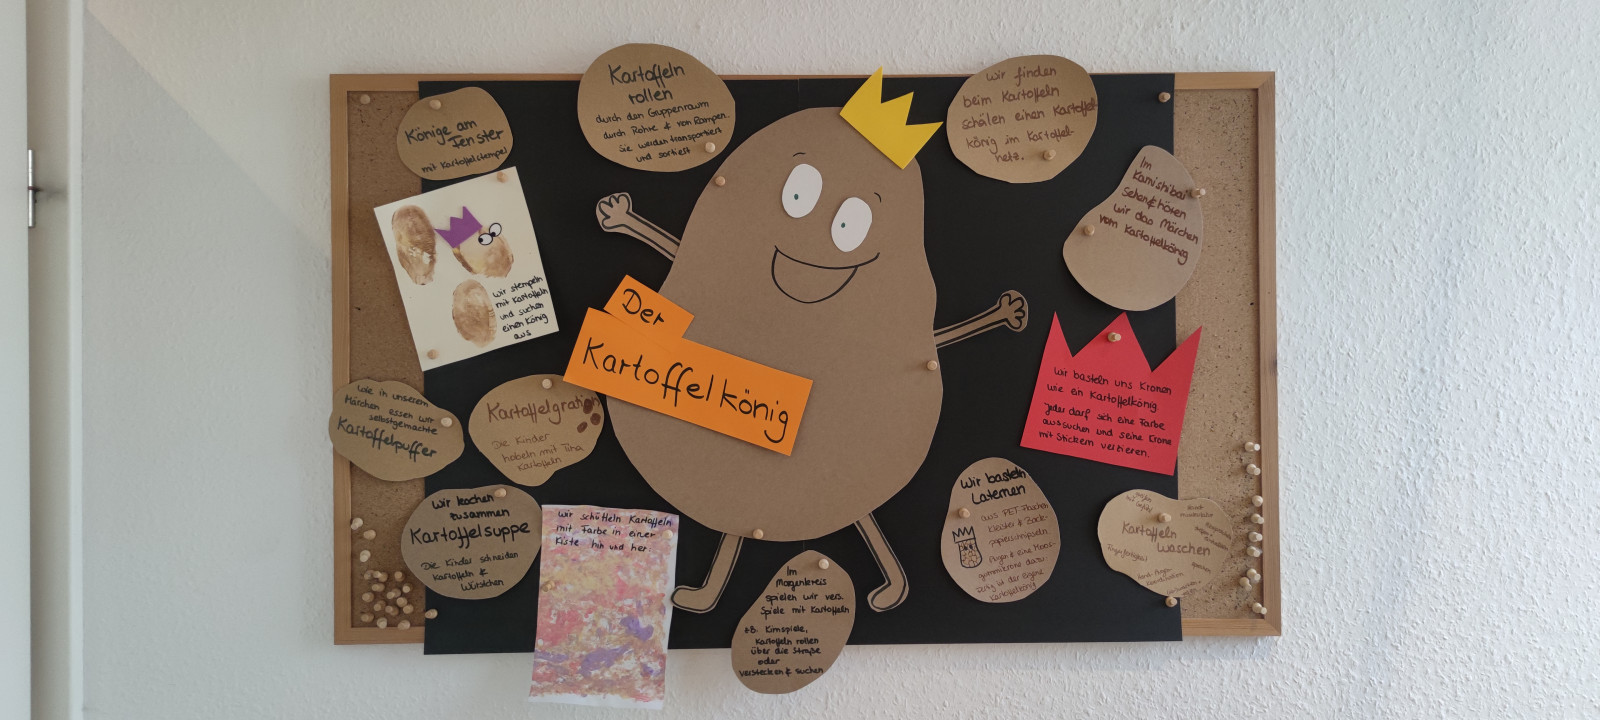 Könige am
Fenster
mit Kartoffelstempel
Kartoffeln
rollen
durch den Gruppenraum
durch Rohre & von Rampen.
Sie werden transportiert
und sortiert
Wir finden
beim Kartoffeln
schälen einen Kartoffel-
könig im Kartoffel-
netz.
Im
Kamishibai
sehen & hören
wir das Märchen
vom Kartoffelkönig
wir stempeln
mit Kartoffeln
und suchen
einen König
aus
Der
Kartoffelkönig
Wir basteln uns Kronen
wie ein Kartoffelkönig.
Jeder darf sich eine Farbe
aussuchen und seine Krone
mit Stickern verzieren.
Wie in unserem
Märchen essen wir
selbstgemachte
Kartoffelpuffer
Kartoffelgratin
Die Kinder
hobeln mit Tina
Kartoffeln
Wir kochen
zusammen
Kartoffelsuppe
Die Kinder schneiden
Kartoffeln &
Würstchen
Wir schütteln Kartoffeln
mit Farbe in einer
Kiste hin und her
Im
Morgenkreis
spielen wir vers.
Spiele mit Kartoffeln
z.B. Kimspiele,
Kartoffeln rollen
über die Straße
oder
verstecken & suchen
Wir basteln
Laternen
aus PET-Flaschen
Kleister & Back-
papierschnipseln.
Augen & eine Moos-
gummikrone dazu.
Fertig ist der eigene
Kartoffelkönig
Kartoffeln
waschen